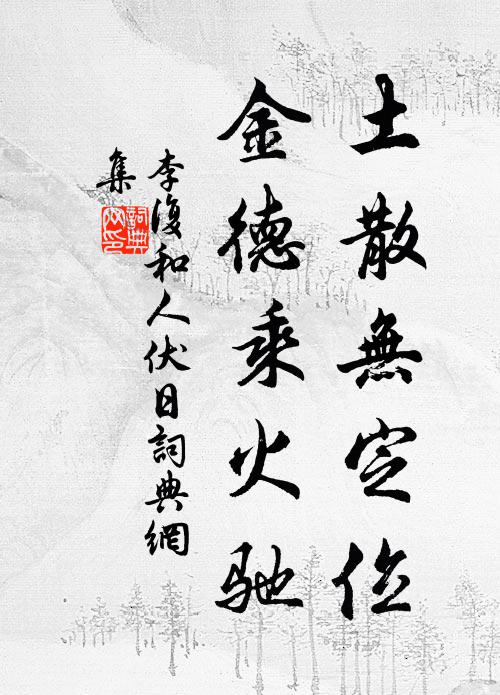 土散無定位
金德乘火馳
李復和人伏日詞典網
集
詞典網印